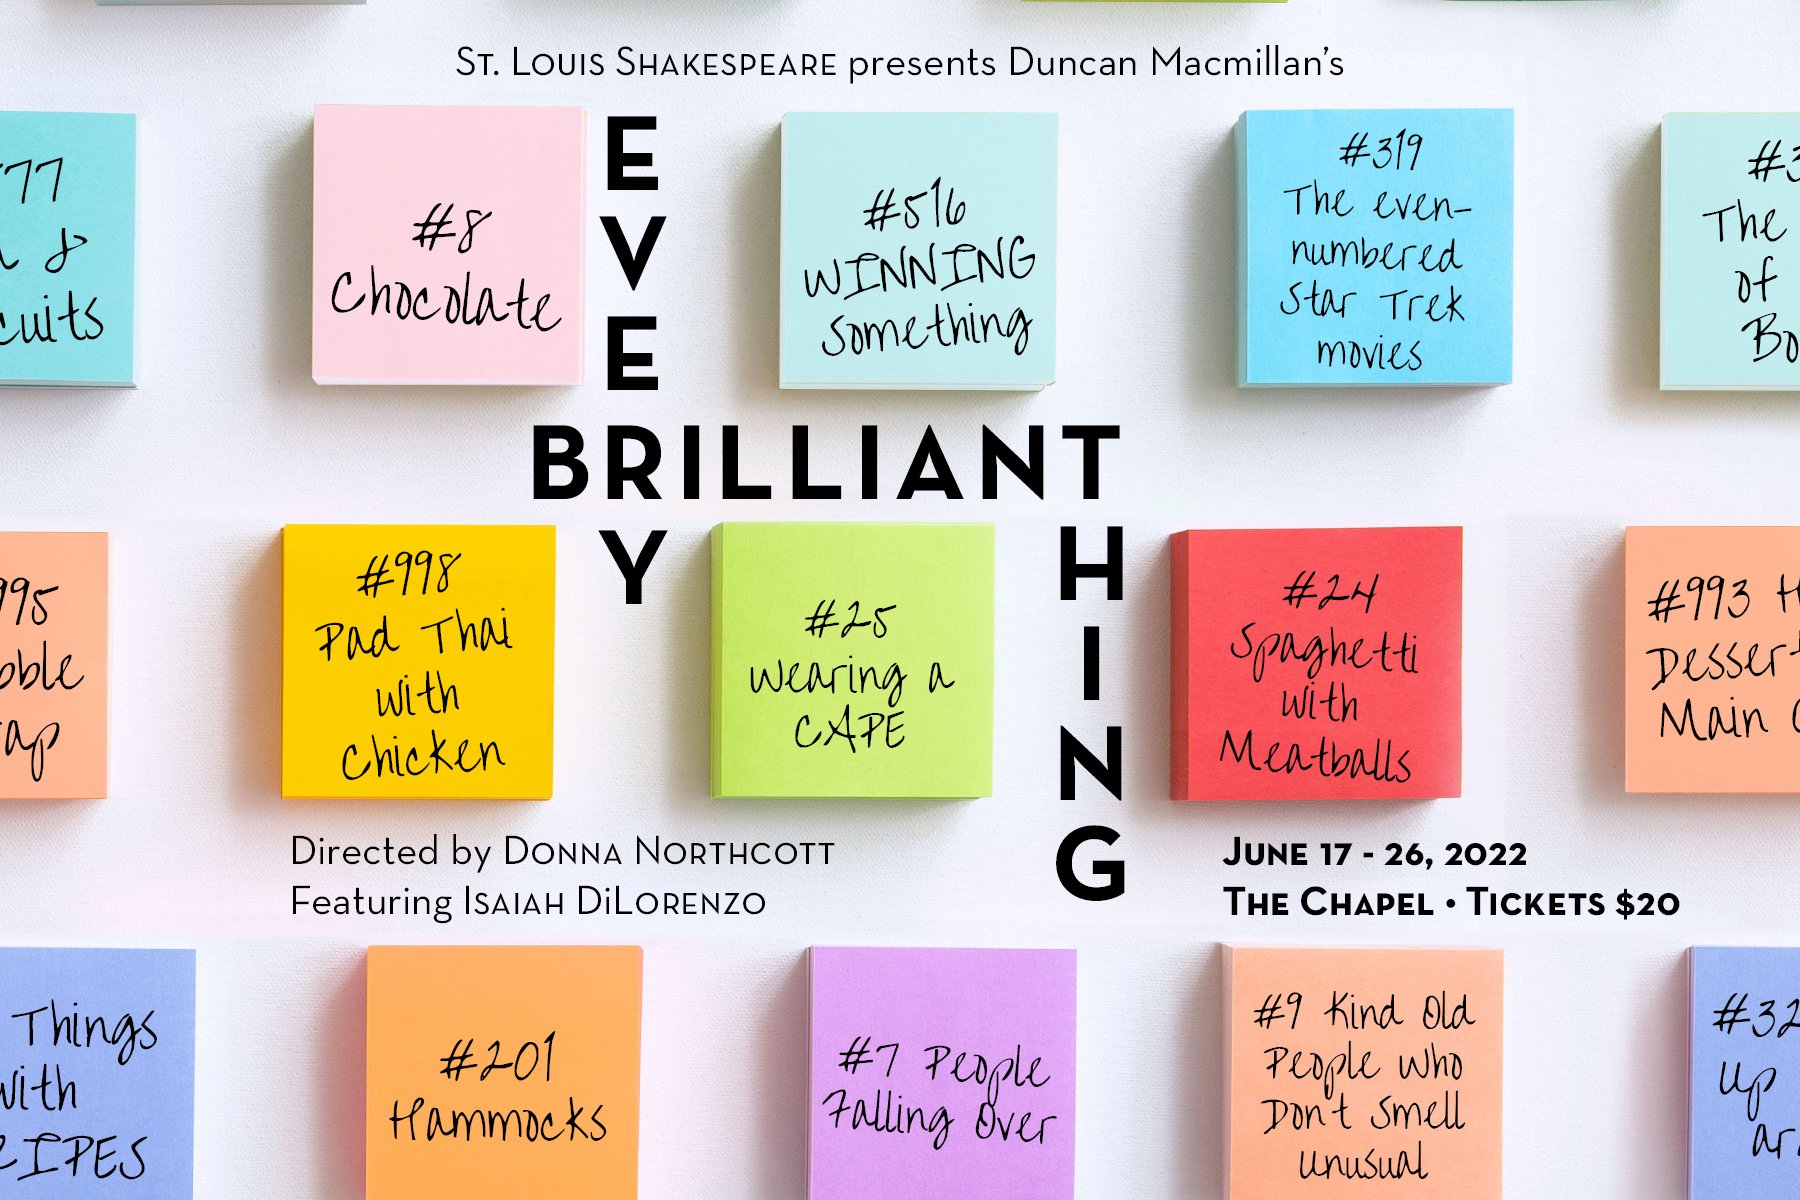 St. Louis Shakespeare presents Duncan Macmillan's
EVERY
BRILLIANT
THING
#8
Chocolate
#516
WINNING
something
#319
The even-
numbered
Star Trek
movies
The
of
#998
Pad Thai
with
Chicken
#25
wearing a
CAPE
#24
Spaghetti
with
Meatballs
#993
Main
Directed by Donna Northcott
Featuring Isaiah DiLorenzo
June 17 - 26, 2022
The Chapel • Tickets $20
Things
with
#201
Hammocks
#7 People
Falling Over
#9 Kind Old
People Who
Don't Smell
unusual
Up